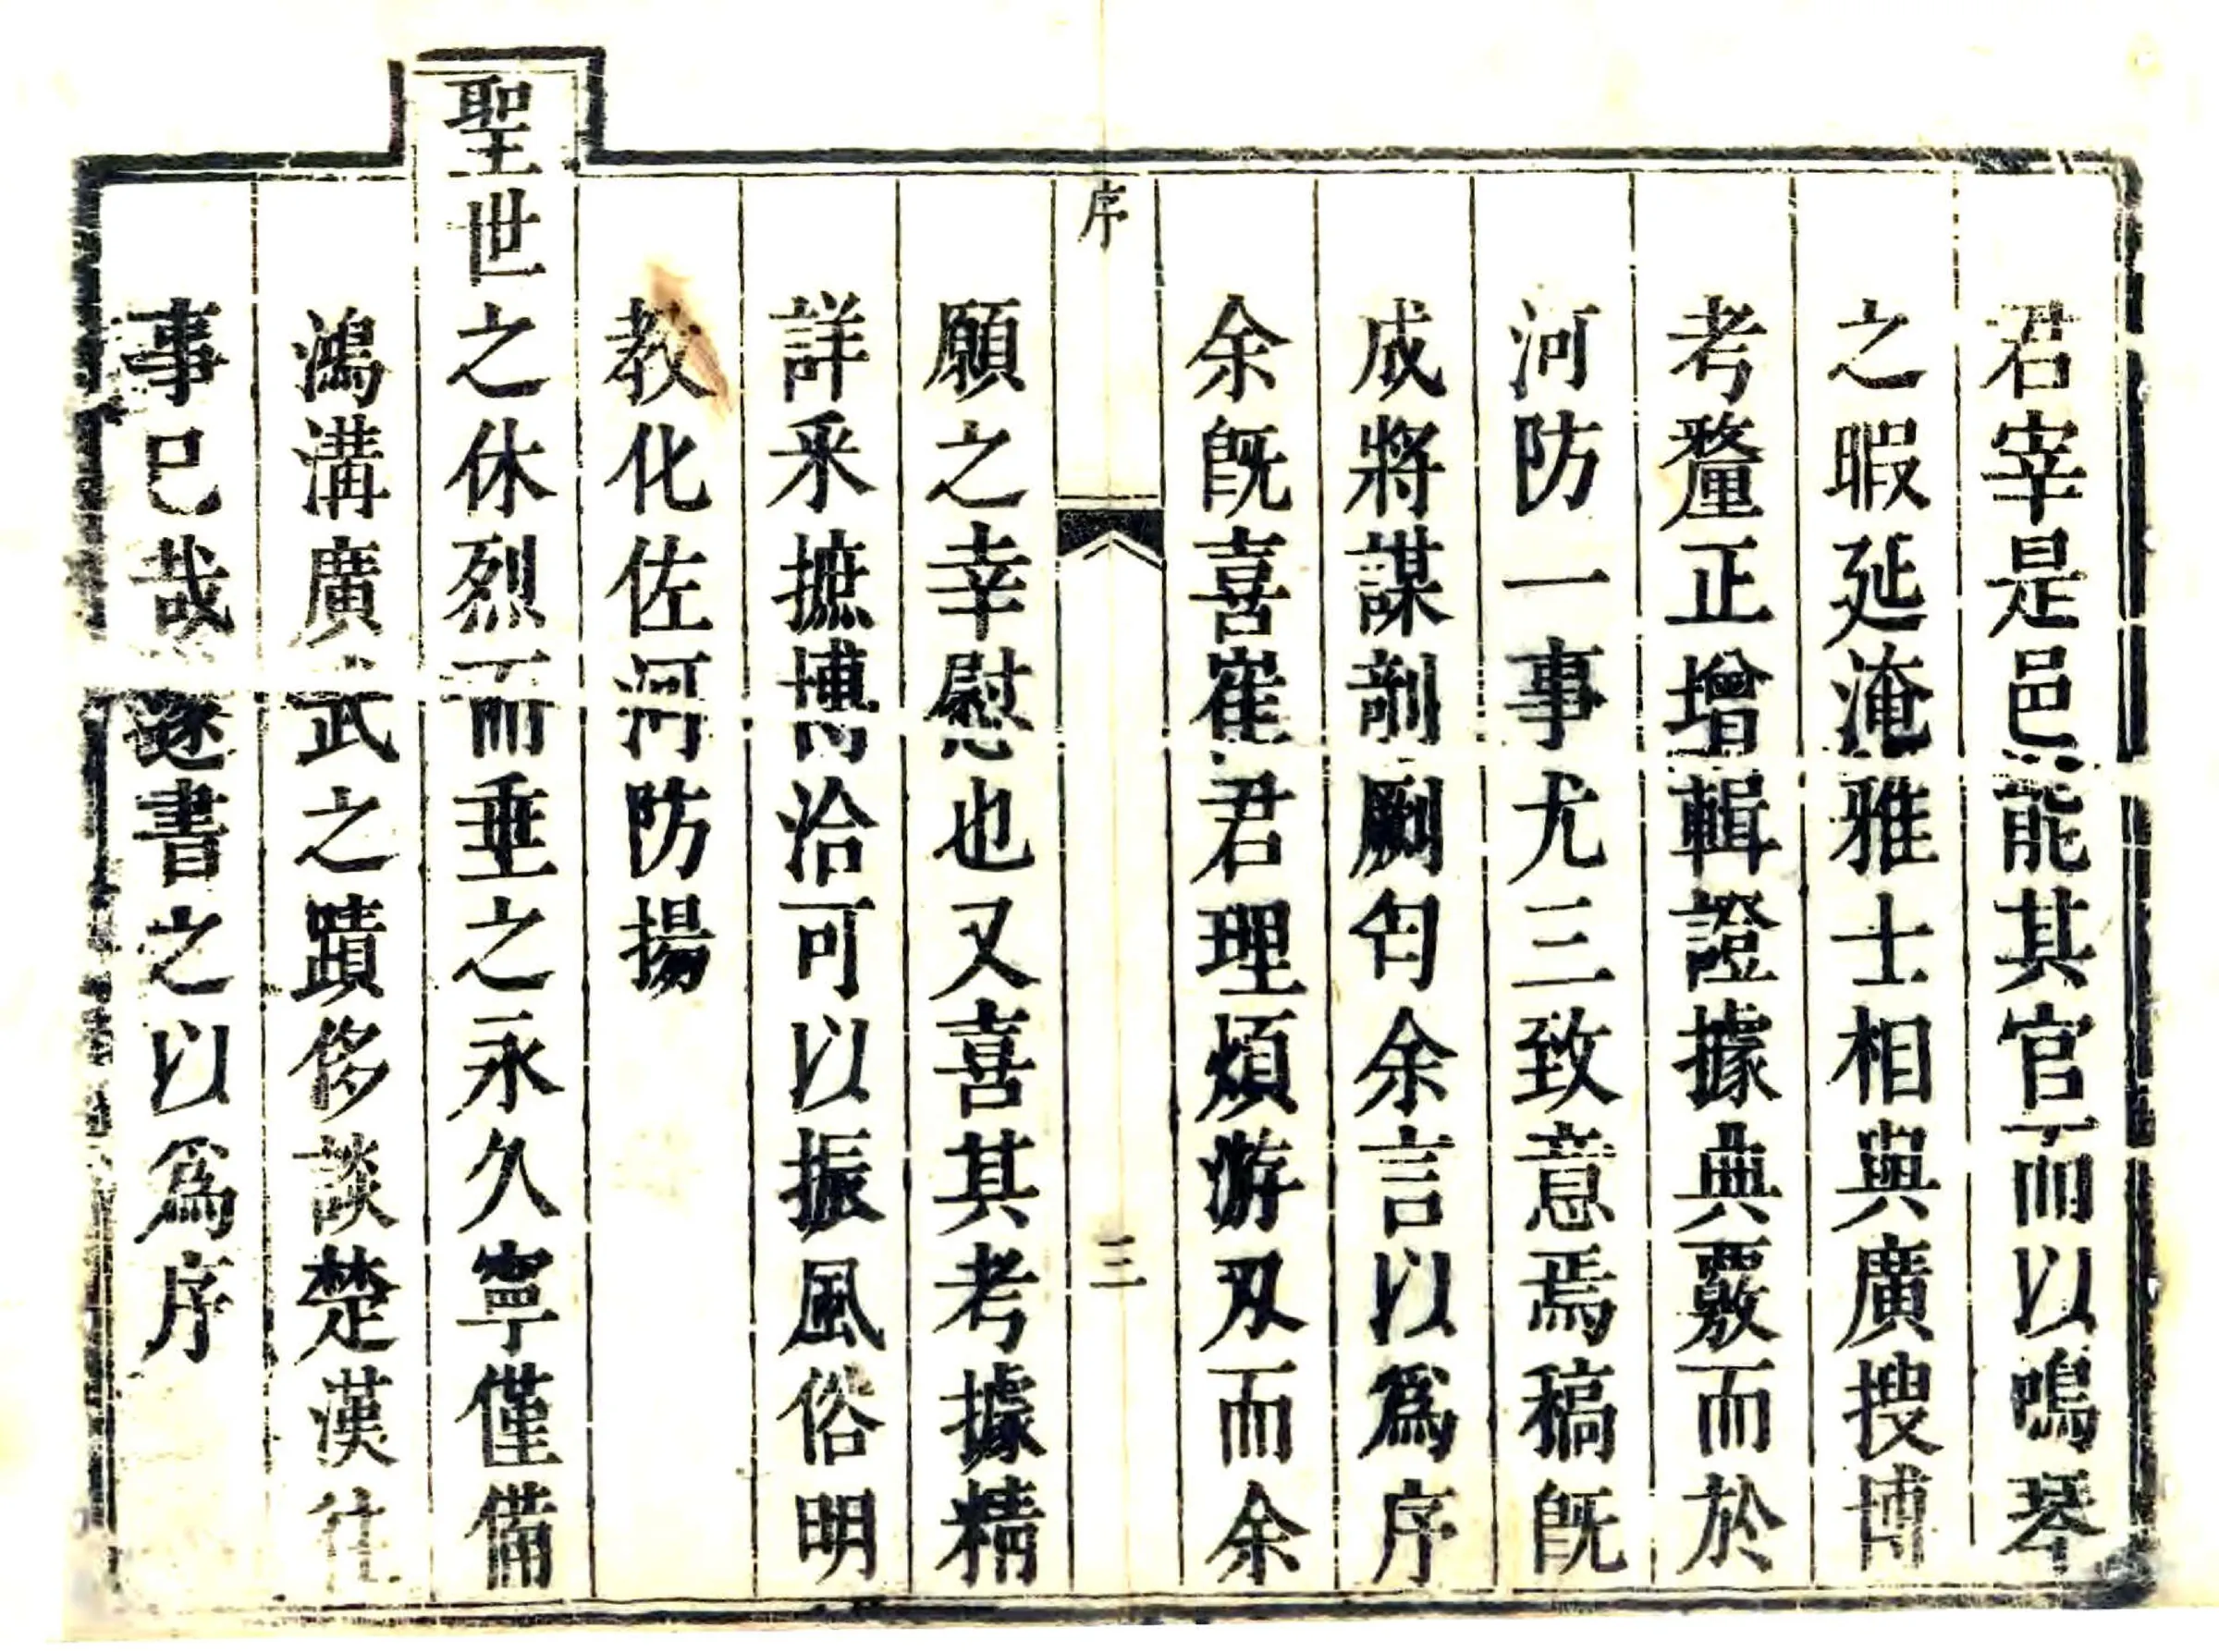 君宰是邑能其官而以鳴琴
之暇延淹雅士相與廣搜博
考釐正增輯證據典覈而於
河防一事尤三致意焉稿既
成將謀剞劂匄余言以爲序
余既喜崔君理煩游刃而余
序
三
願之幸慰也又喜其考據精
詳釆摭博洽可以振風俗明
教化佐河防揚
聖世之休烈而垂之永久寧僅備
鴻溝廣武之蹟侈談楚漢
事已哉遂書之以爲序